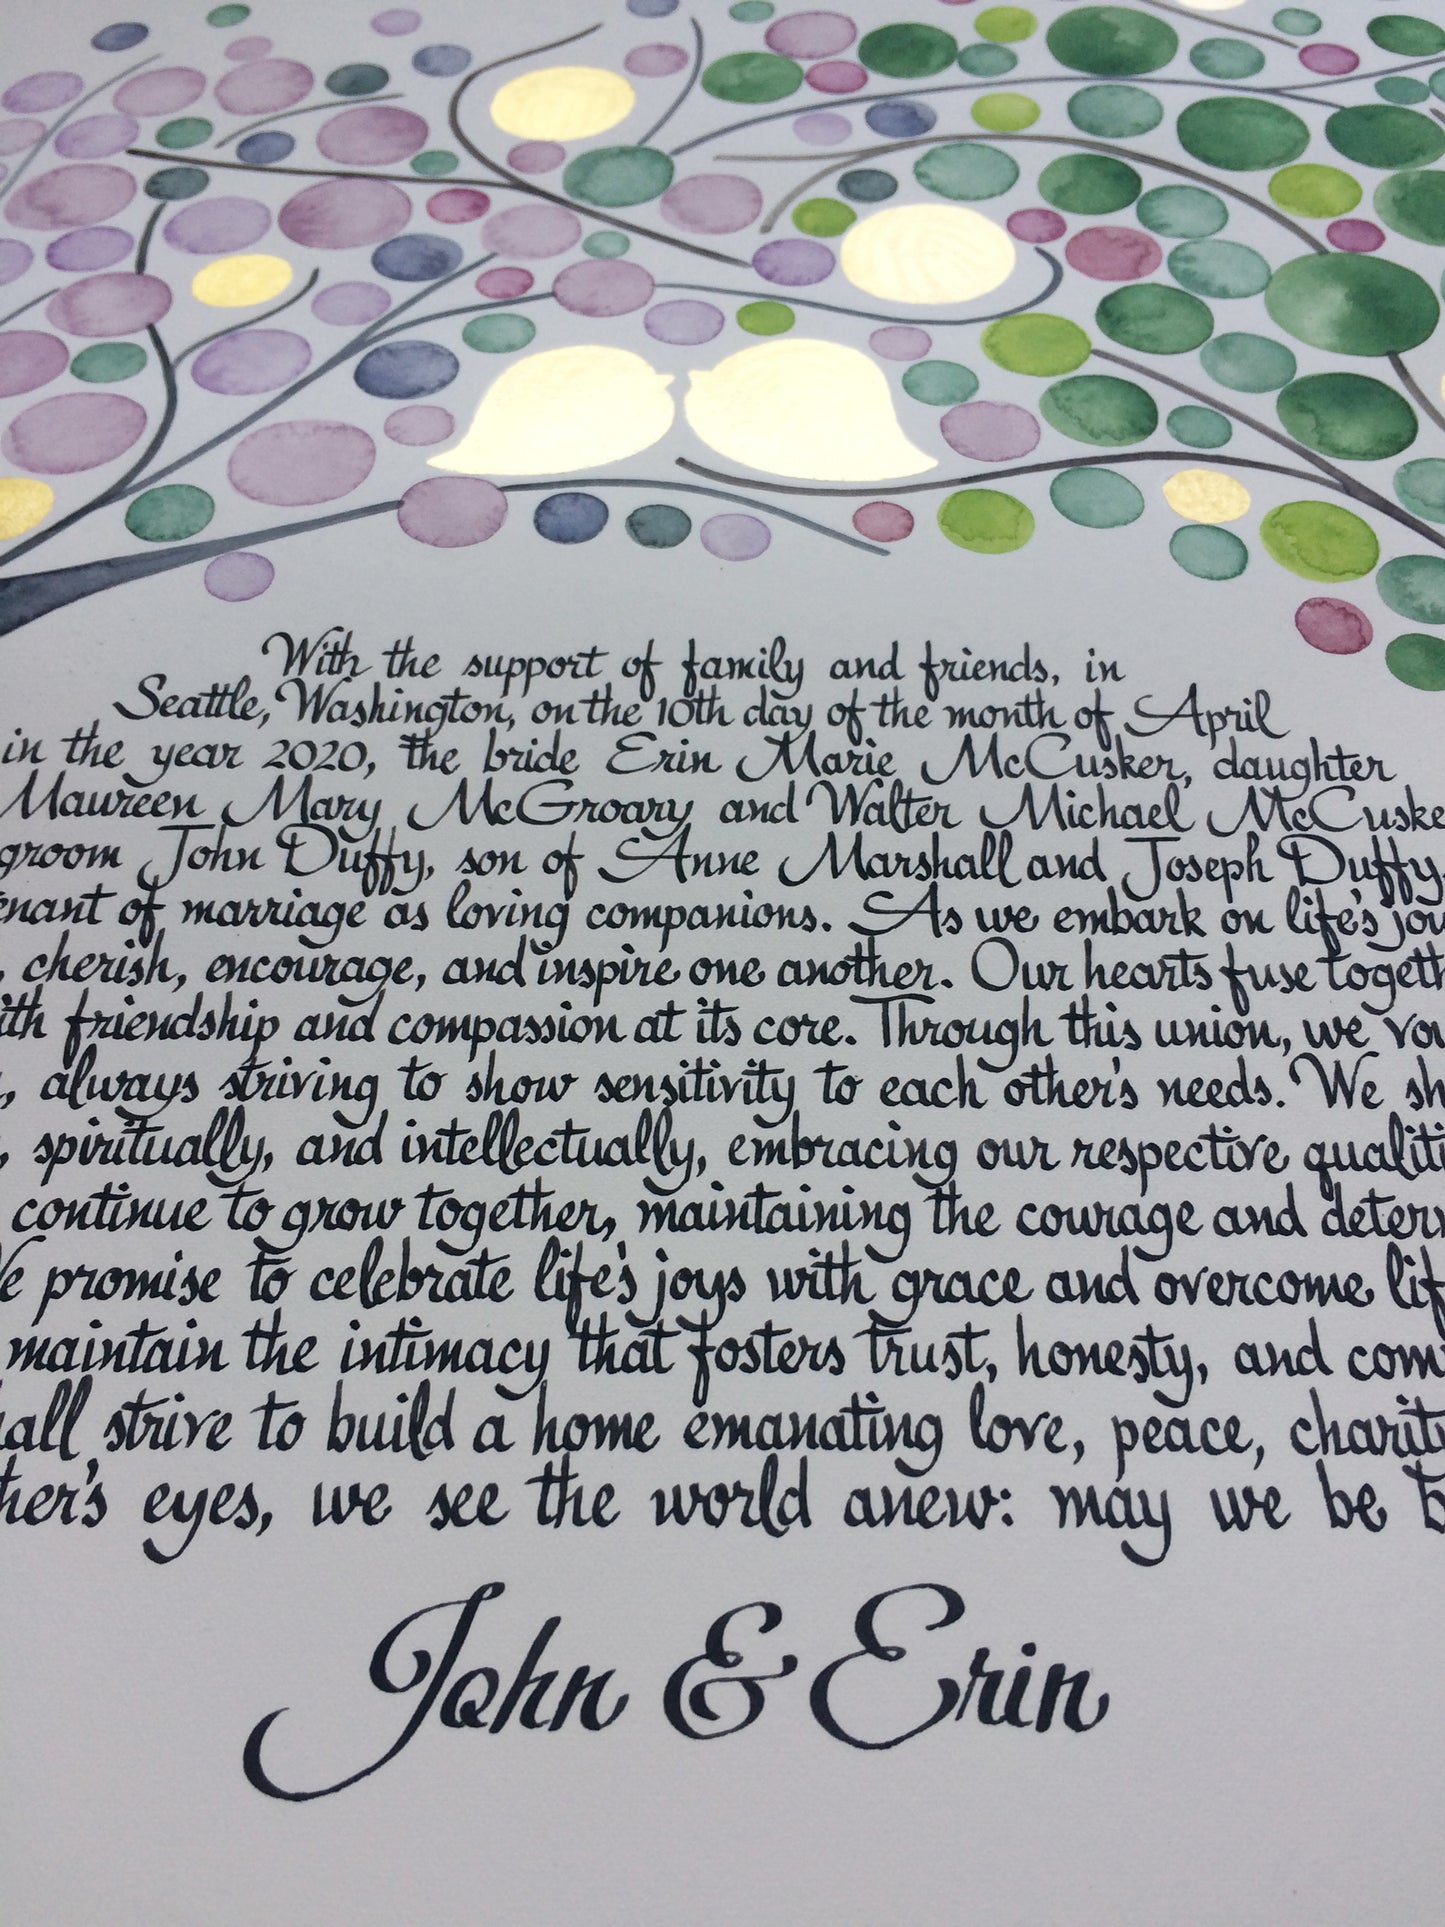 With the support of family and friends, in
Seattle, Washington, on the 10th day of the month of April
in the year 2020, the bride Erin Marie McCusker, daughter
Maureen Mary McGroary and Walter Michael McCuske
groom John Duffy, son of Anne Marshall and Joseph Duffy
enant of marriage as loving companions. As we embark on life's jou
, cherish, encourage, and inspire one another. Our hearts fuse togeth
ith friendship and compassion at its core. Through this union, we vow
, always striving to show sensitivity to each other's needs. We sh
, spiritually, and intellectually, embracing our respective qualiti
continue to grow together, maintaining the courage and determ
We promise to celebrate life's joys with grace and overcome lif
maintain the intimacy that fosters trust, honesty, and com
all strive to build a home emanating love, peace, charity
her's eyes, we see the world anew: may we be
John & Erin